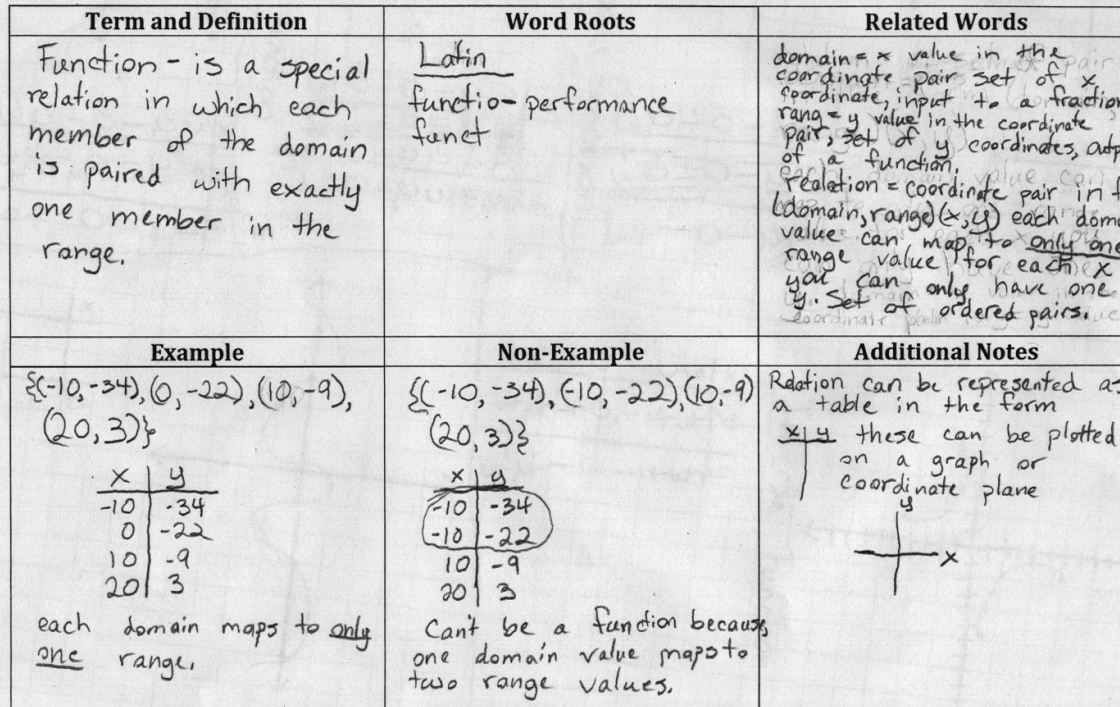 Term and Definition
Function - is a special
relation in which each
member of the domain
is paired with exactly
one member in the
range.
Word Roots
Latin
functio - performance
funct
Related Words
domain = x value in the
coordinate pair set of x
coordinate, input to a fraction
rang = y value in the coordinate
pair, set of y coordinates, outp
of a function
realation = coordinate pair in
(domain, range) (x, y) each doma
value can map to only one
range value for each x
you can only have one
y. Set of ordered pairs.
Example
{(-10, -34), (0, -22), (10, -9),
(20, 3)}
x y
-10 -34
0 -22
10 -9
20 3
each domain maps to only
one range.
Non-Example
{(-10, -34), (-10, -22), (10, -9)
(20, 3)}
x y
-10 -34
-10 -22
10 -9
20 3
Can't be a function because
one domain value maps to
two range values.
Additional Notes
Relation can be represented as
a table in the form
x y these can be plotted
on a graph or
coordinate plane
y
x